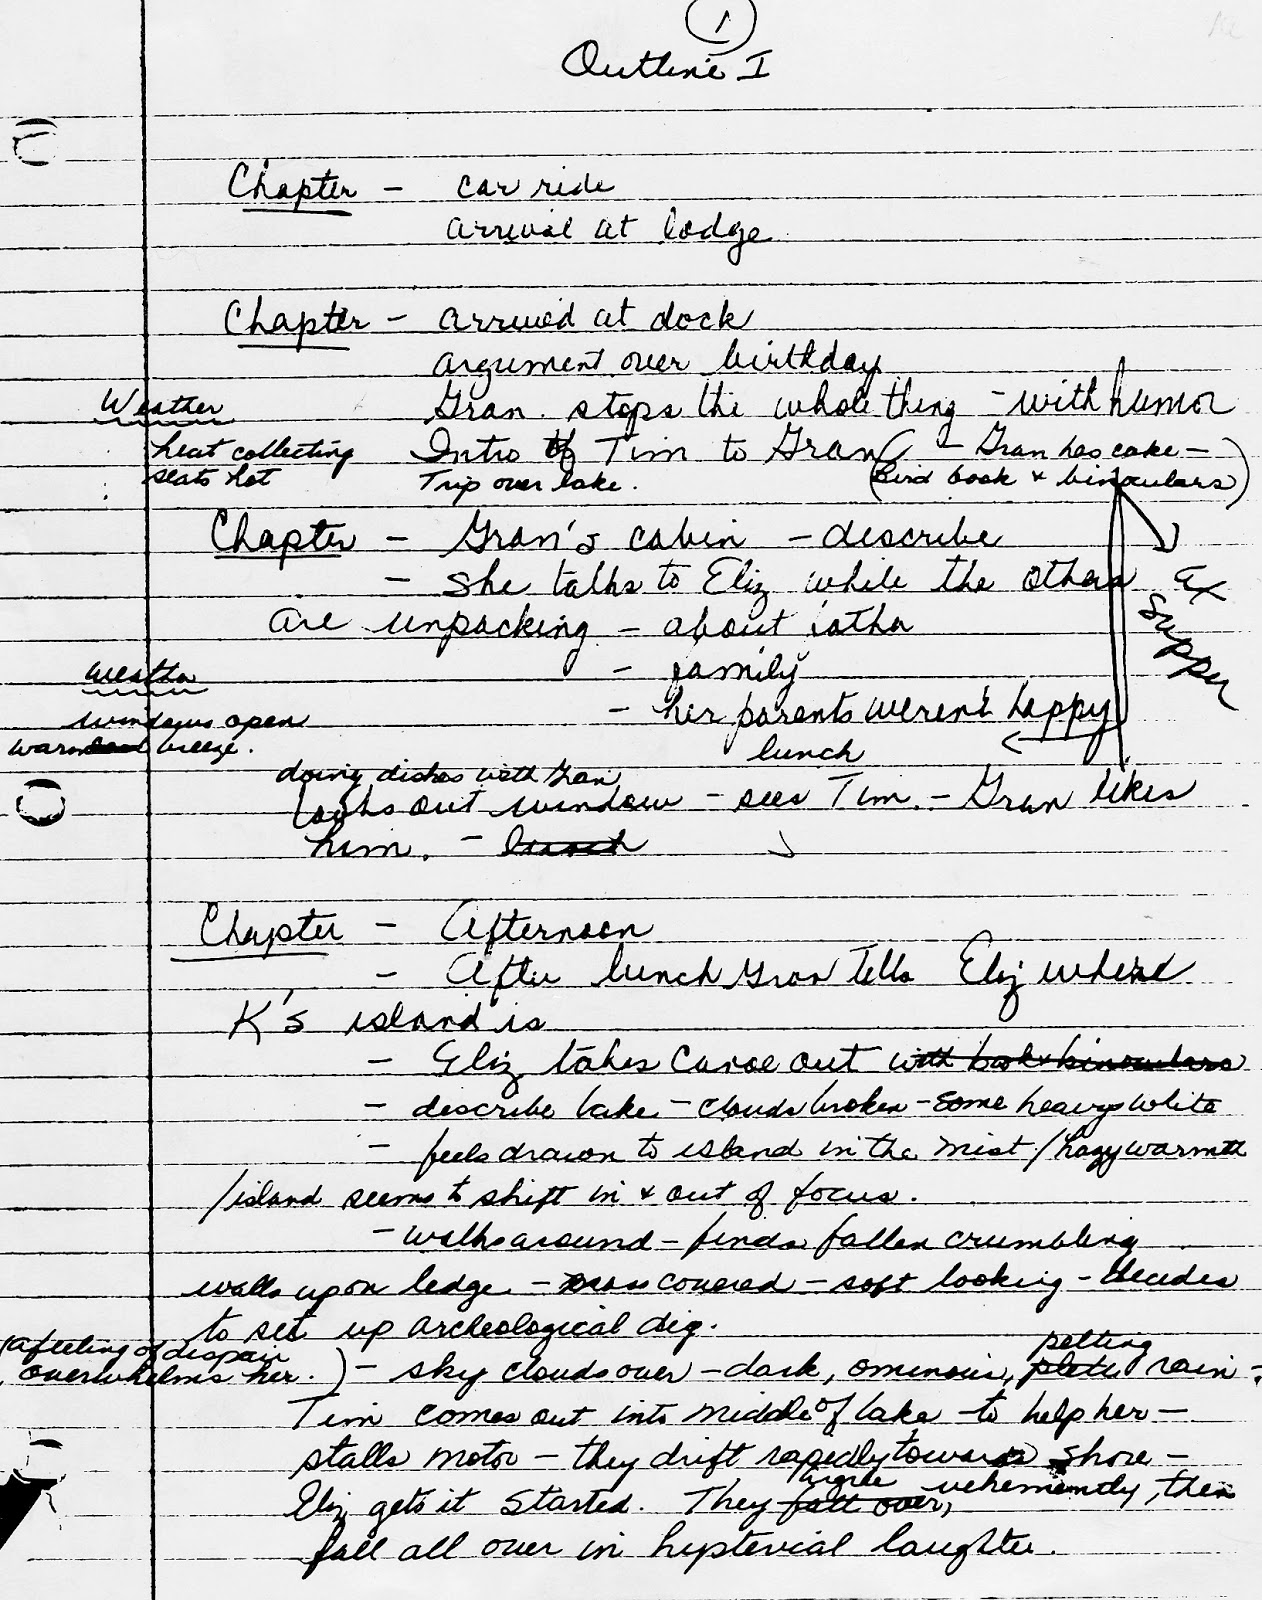 1
Outline I
Chapter - car ride
arrival at lodge
Chapter - arrived at dock
argument over birthday
Weather
Gran. stops the whole thing - with humor
heat collecting
seats hot
Intro of Tim to Gran ( - Gran has cake -
Trip over lake.
Bird book & binoculars)
Chapter - Gran's cabin - describe
- she talks to Eliz while the others
at supper
are unpacking - about
- family
Weather
windows open
warm breeze.
- her parents weren't happy
lunch
doing dishes with Gran
looks out window - sees Tim. - Gran likes
him. - lunch
Chapter - Afternoon
- After lunch Gran tells Eliz where
K's island is
- Eliz takes canoe out with book & binoculars
- describe lake - clouds broken - some heavy white
- feels drawn to island in the mist / hazy warmth
/island seems to shift in & out of focus.
- walks around - finds fallen crumbling
walls upon ledge - moss covered - soft looking - decides
to set up archeological dig.
(a feeling of despair
overwhelms her.)
- sky clouds over - dark, ominous, pelting rain -
Tim comes out into middle of lake to help her -
stalls motor - they drift rapedly towards shore -
Eliz gets it started. They fall over, argue vehemently, then
fall all over in hysterical laughter.